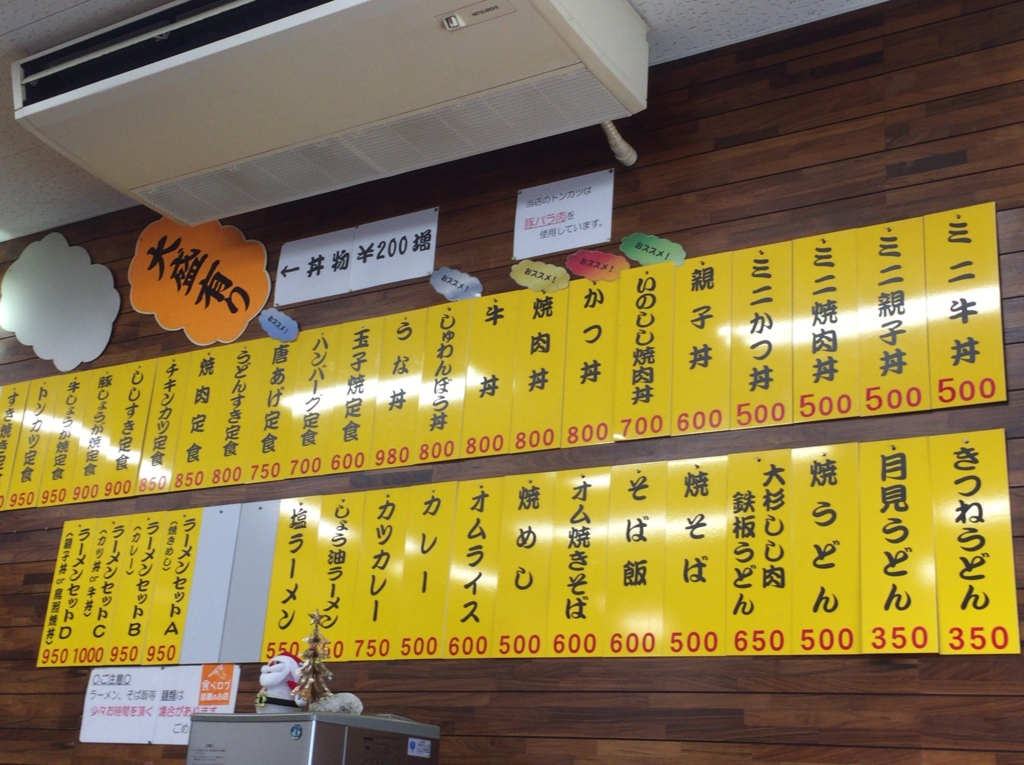 MITSUBISHI
大盛有り
← 丼物¥200増
当店のトンカツは
豚バラ肉を
使用しています。
おススメ!
おススメ!
おススメ!
おススメ!
おススメ!
ミニ牛丼 500
ミニ親子丼 500
ミニ焼肉丼 500
ミニかつ丼 500
親子丼 600
いのしし焼肉丼 700
かつ丼 800
焼肉丼 800
牛丼 800
しゅわんぼう丼 800
うな丼 980
玉子焼定食 600
ハンバーグ定食 700
唐あげ定食 750
うどんすき定食 800
焼肉定食 850
チキンカツ定食 850
ししすき定食 900
豚しょうが焼定食 900
牛しょうが焼定食 950
トンカツ定食 950
すき焼き定食
きつねうどん 350
月見うどん 350
焼うどん 500
大杉しし肉
鉄板うどん 650
焼そば 500
そば飯 600
オム焼きそば 600
焼めし 500
オムライス 600
カレー 500
カツカレー 750
しょう油ラーメン
塩ラーメン 550
ラーメンセットA
(焼きめし) 950
ラーメンセットB
(カレー) 950
ラーメンセットC
(カツ丼or牛丼) 1000
ラーメンセットD 950
○ご注意○
ラーメン、そば飯等 麺類は
少々お時間を頂く 場合があります
食べログ